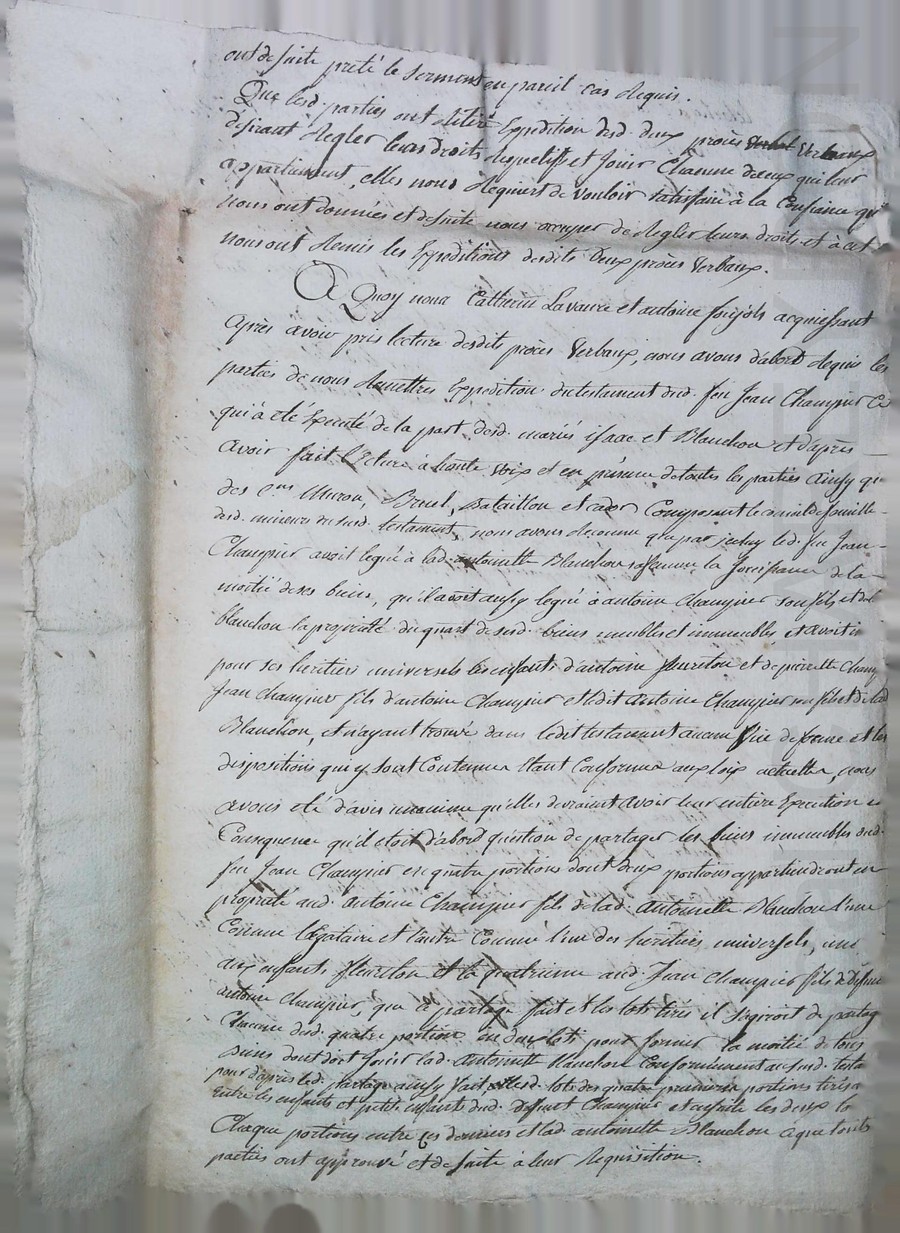 ont de suite prêté le serment en pareil cas Requis.
Que lesd. parties ont Retiré Expedition desd. deux procès verbal verbaux
désirant Regler leurs droits Respectifs et Jouir Chacune de ceux qui leur
appartiennent, elles nous Requiert de vouloir satisfaire à la Confiance qu'
nous ont données et de suite nous occuper de Regler leurs droits et à cet
nous ont Remis les Expeditions desdits Deux procès Verbaux.
A Quoy nous Catherin Lavaure et antoine acquiessant
Après avoir pris lecture desdit procès Verbaux, nous avons d'abord Requis les
parties de nous Remettres Expedition du testament dud. feu Jean Champier Ce
qui à été Executé de la part desd. mariés isaac et Blanchon et d'après
Avoir fait Lecture à haute Voix et en présence de toutes les parties Ainsy qu
des Cns Muron, Bataillon et composant le conseil de famille
desd. mineurs dud. testament, nous avons Reconnu que par iceluy led. feu Jean
Champier avoit legué à lad. antoinette Blanchon sa femme la Jouissance de la
moitié de ses biens, qu'il avoit ausy legué à antoine Champier son fils et de lad
blanchon la proprieté du quart de sesd. biens meubles et immeubles et avoit
pour ses heritiers universels les enfants d'antoine fleureton et de pierrette Champ
Jean Champier fils d'antoine Champier et ledit Antoine Champier son fils et de lad
Blanchon, et n'ayant trouvé dans ledit testament aucun Vice de forme et les
dispositions qui y sont Contenues Etant Conformes aux loix actuelles, nous
avons été d'avis unanime qu'elles devraient avoir leur entière Execution en
Consequence qu'il etoit d'abord question de partager les biens immeubles dud.
feu Jean Champier en quatre portions dont deux portions appartiendront en
propriété aud. Antoine Champier fils de lad. Antoinette Blanchon l'une
Comme légataire et l'autre Comme l'un des heritiers universels, une
aux enfants fleureton et la quatrieme aud. Jean Champier fils de défunt
antoine Champier, que ce partage fait et les lots tirés il s'agiroit de partag
Chacune desd. quatre portions en deux lots pour former la moitié de tous
biens dont doit Jouir lad. Antoinette Blanchon Conformément aud. testa
pour d'après led. partage ainsy fait, lesd. lots des quatre premieres portions tirés
Entre les enfants et petits enfants dud. Défunt Champier et ensuite les deux lo
Chaque portions entre ces derniers et lad. antoinette Blanchon ce que toutes
parties ont approuvé et de suite à leur Requisition.